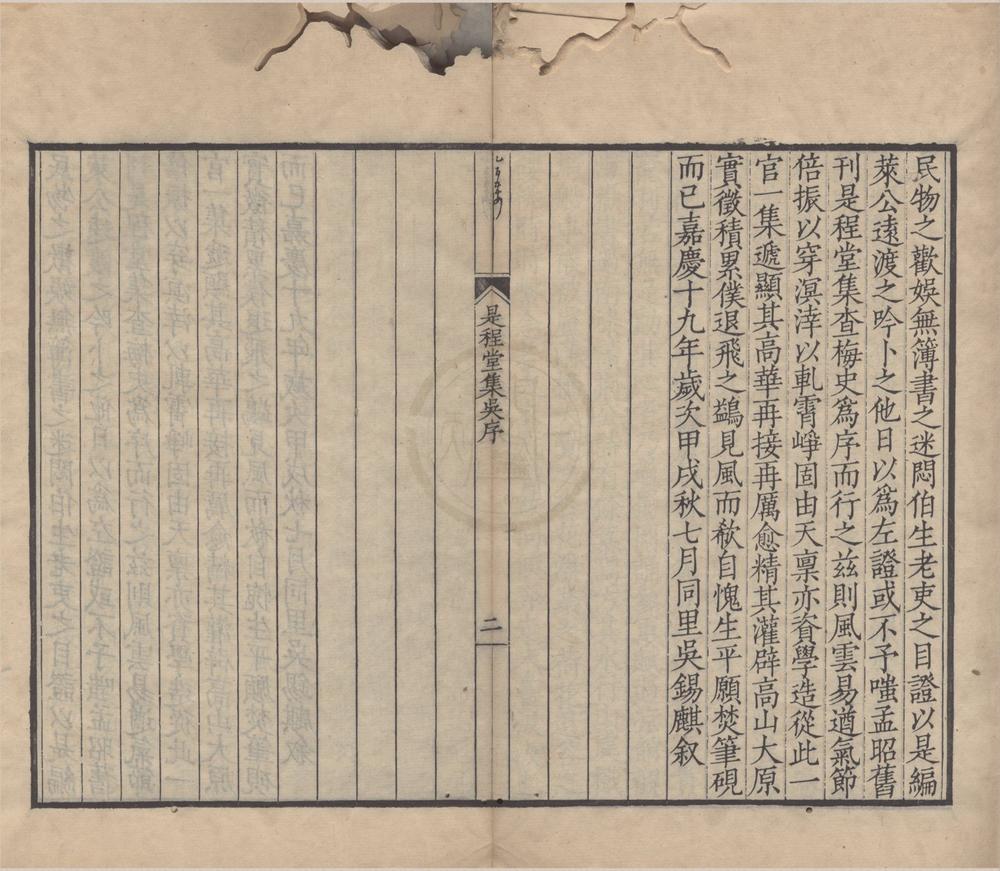 民物之歡娛無簿書之迷悶伯生老吏之目證以是編
萊公遠渡之吟卜之他日以為左證或不予嗤孟昭舊
刊是程堂集查梅史為序而行之茲則風雲易遒氣節
倍振以穿溟涬以軋霄崢固由天稟亦資學造從此一
官一集遞顯其高華再接再厲愈精其灌辟高山大原
實徵積累僕退飛之鷁見風而欷自愧生平願焚筆硯
而已嘉慶十九年歲次甲戌秋七月同里吳錫麒叙
是程堂集吳序
二